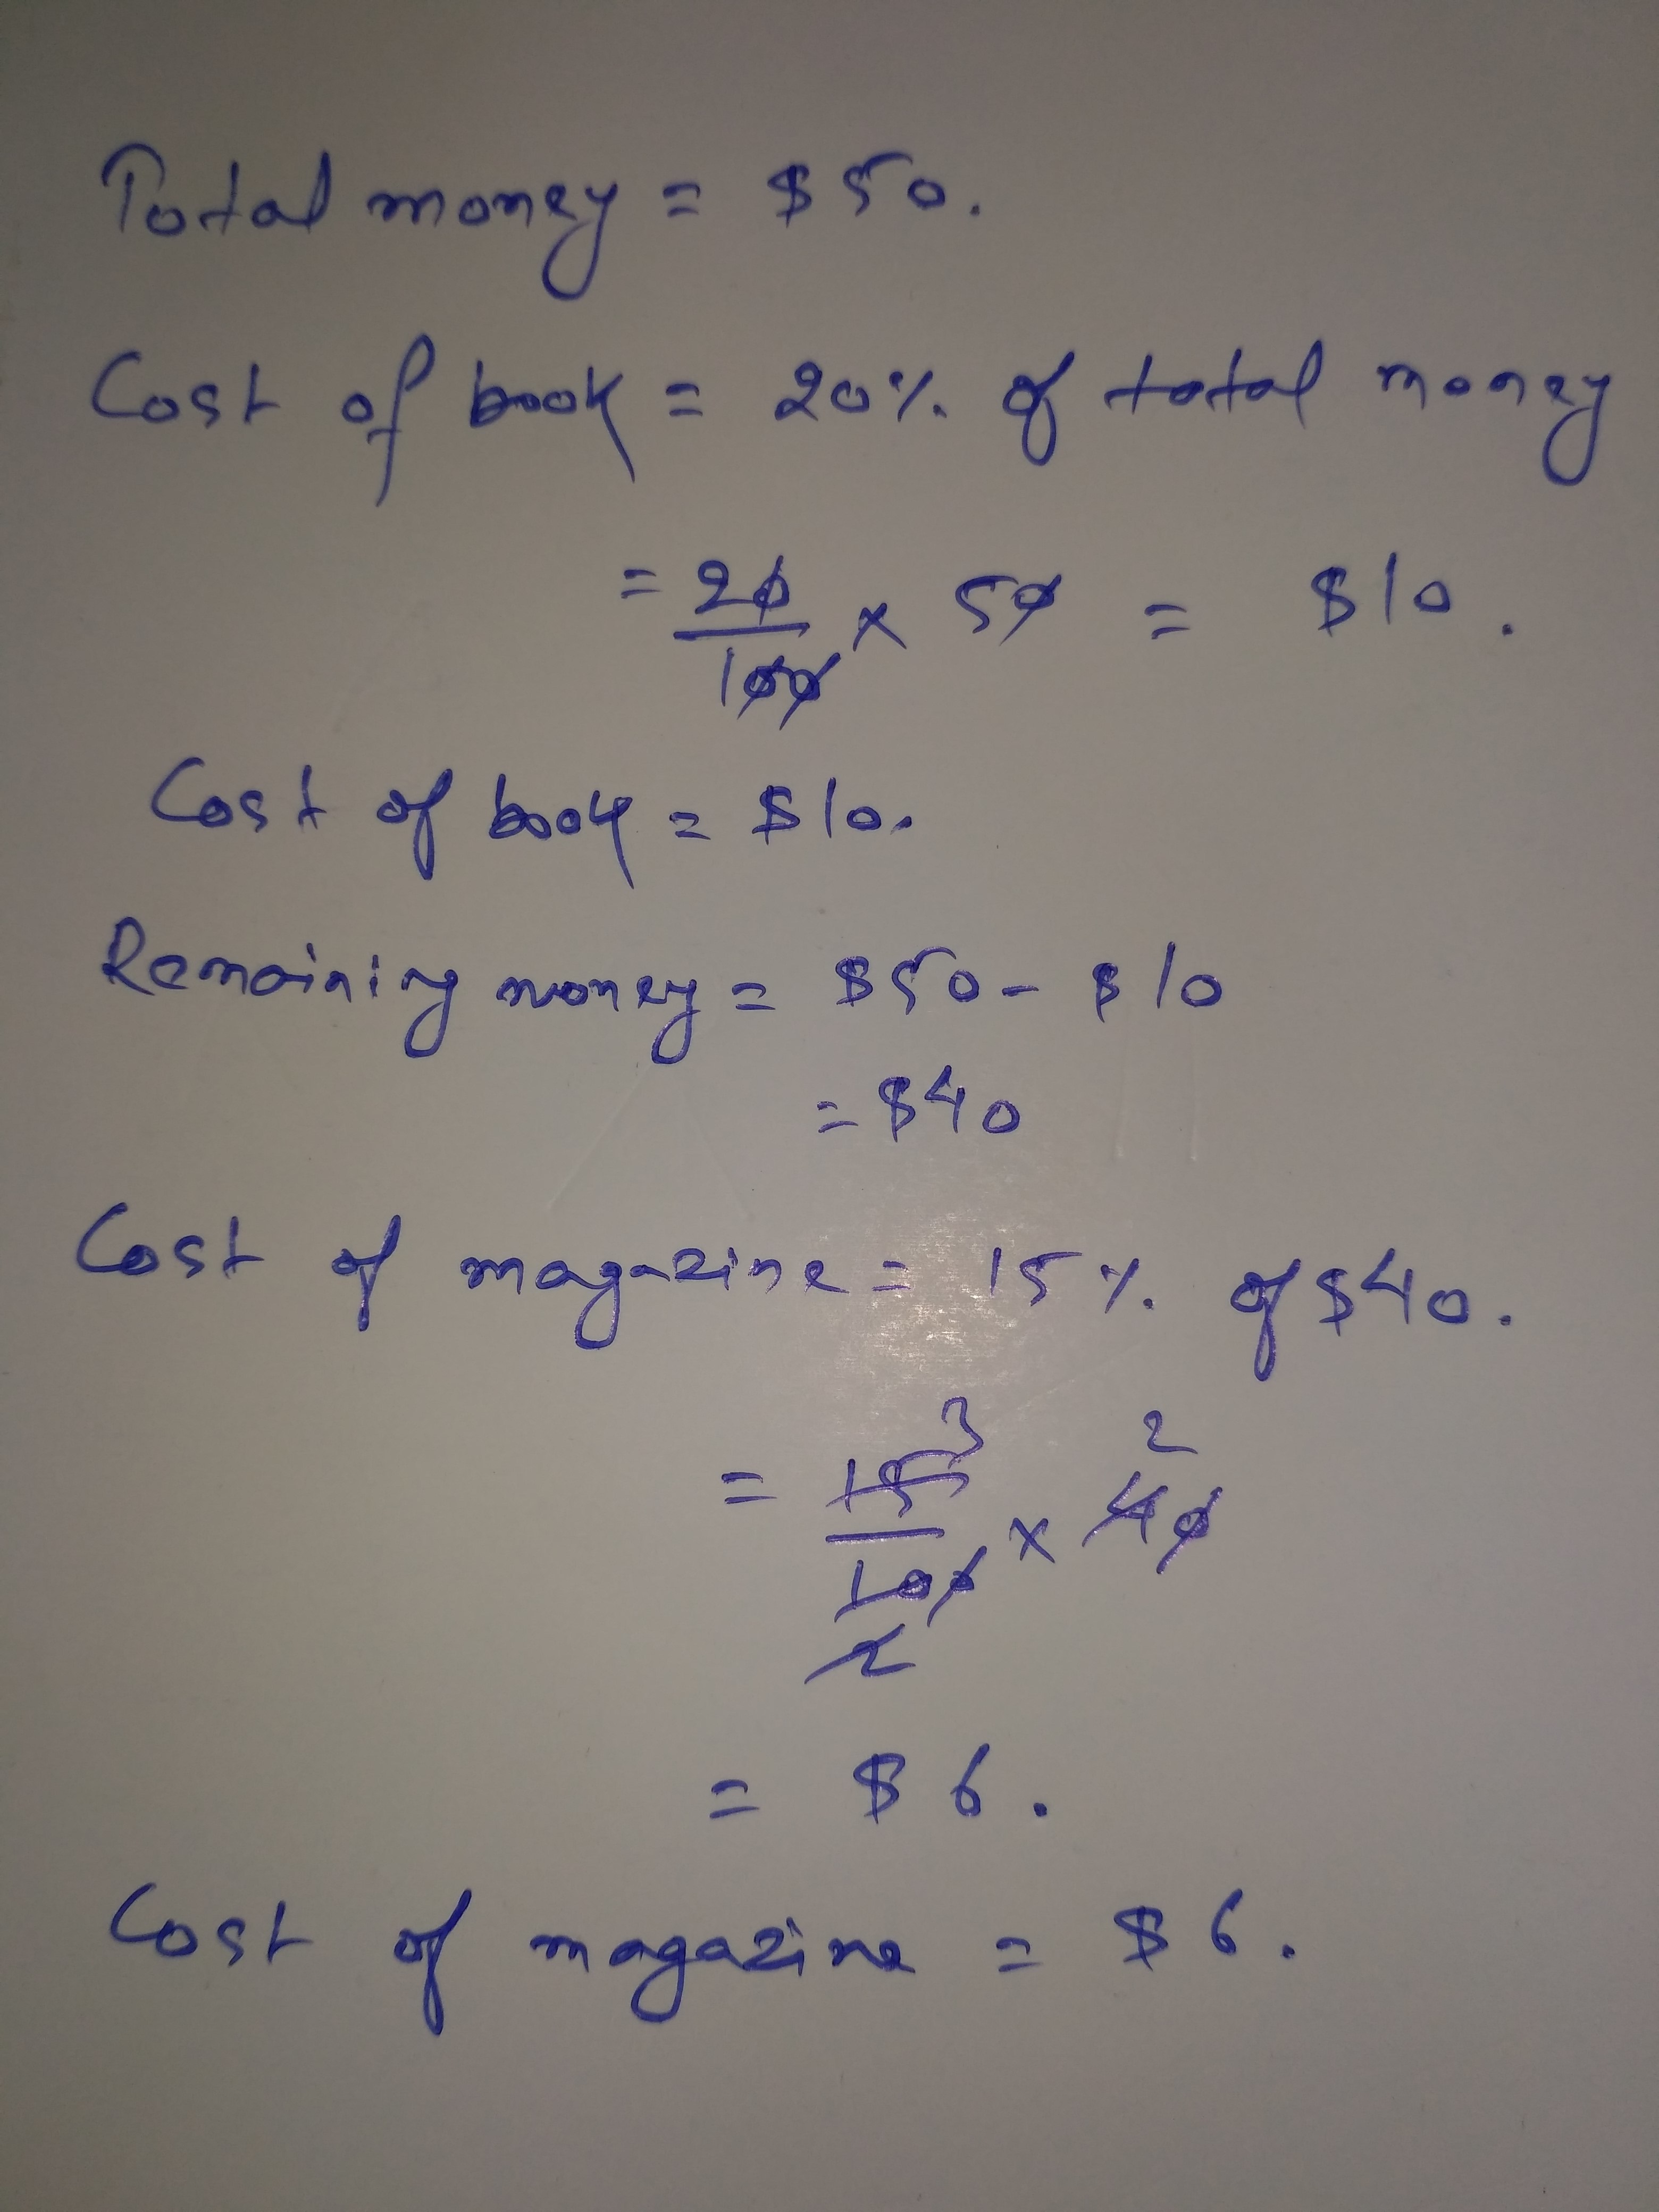 Total money = $50.
Cost of book = 20% of total money
= 20/100 x 50 = $10.
Cost of book = $10.
Remaining money = $50 - $10
= $40
Cost of magazine = 15% of $40.
3 2
= 15/100 x 40
2
= $6.
Cost of magazine = $6.